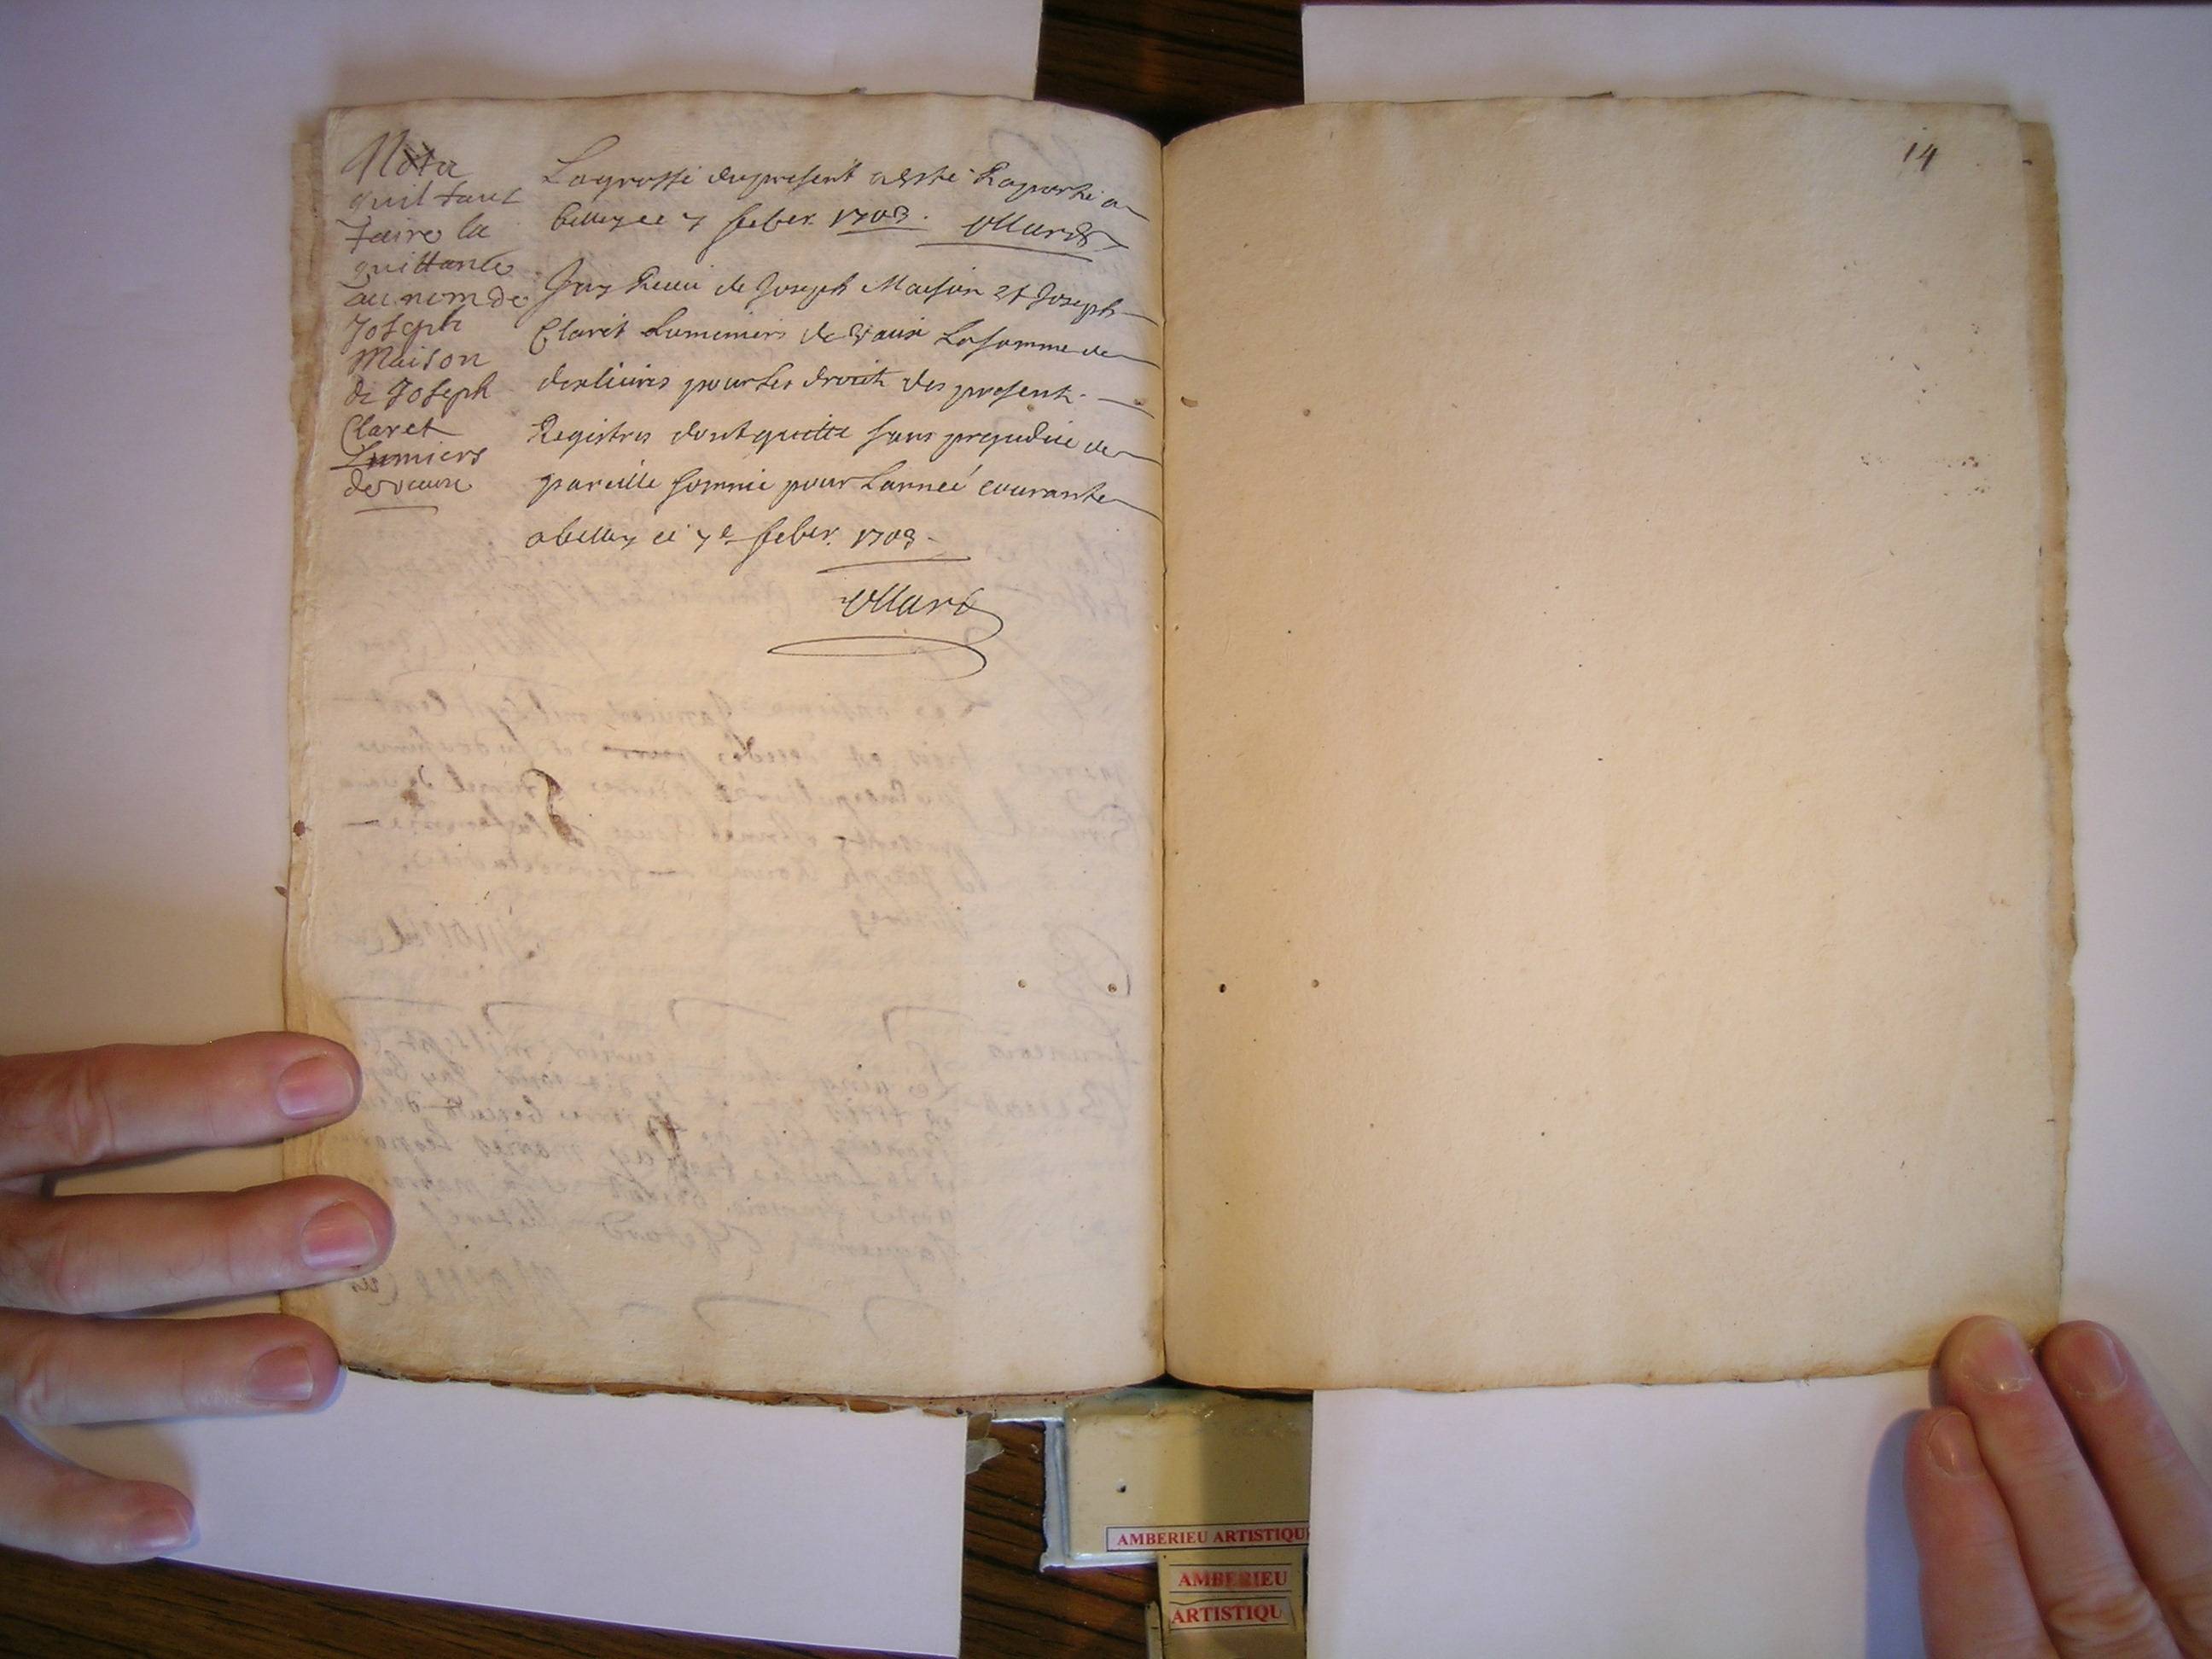 Nota
quil faut
faire la
quittance
au nom de
Joseph
Maison
& Joseph
Claret
Lumiers
de vaux
La grosse du present a esté Raporté a
belley ce 7 feber. 1703. Ollard
Jay Receu de Joseph Maison et Joseph
Claret Luminiers de Vaux La somme de
dix livres pour les droits des present
Registres dont quitte sans prejudice de
pareille somme pour Lanneé courante
a belley ce 7e feber. 1703
Ollard
14
AMBERIEU ARTISTIQU
AMBERIEU
ARTISTIQU